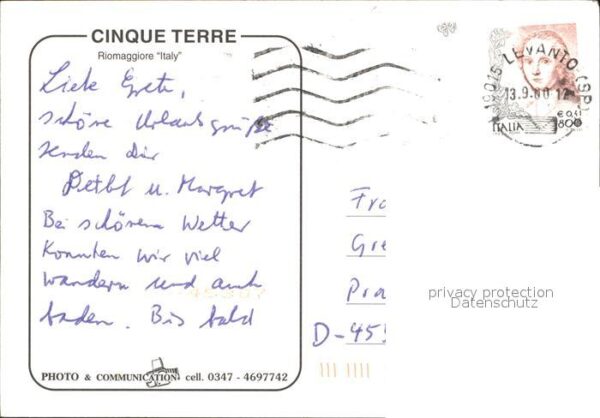 CINQUE TERRE
Riomaggiore "Italy"
Liebe Grete,
schöne Urlaubsgrüße
senden dir
Detlef u. Margret
Bei schönem Wetter
konnten wir viel
wandern und auch
baden. Bis bald
PHOTO & COMMUNICATION cell. 0347 - 4697742
19015 LEVANTO (SP)
13.9.00 12
ITALIA
€ 0,41
800
Fra
Gre
Pra
D-455
privacy protection
Datenschutz